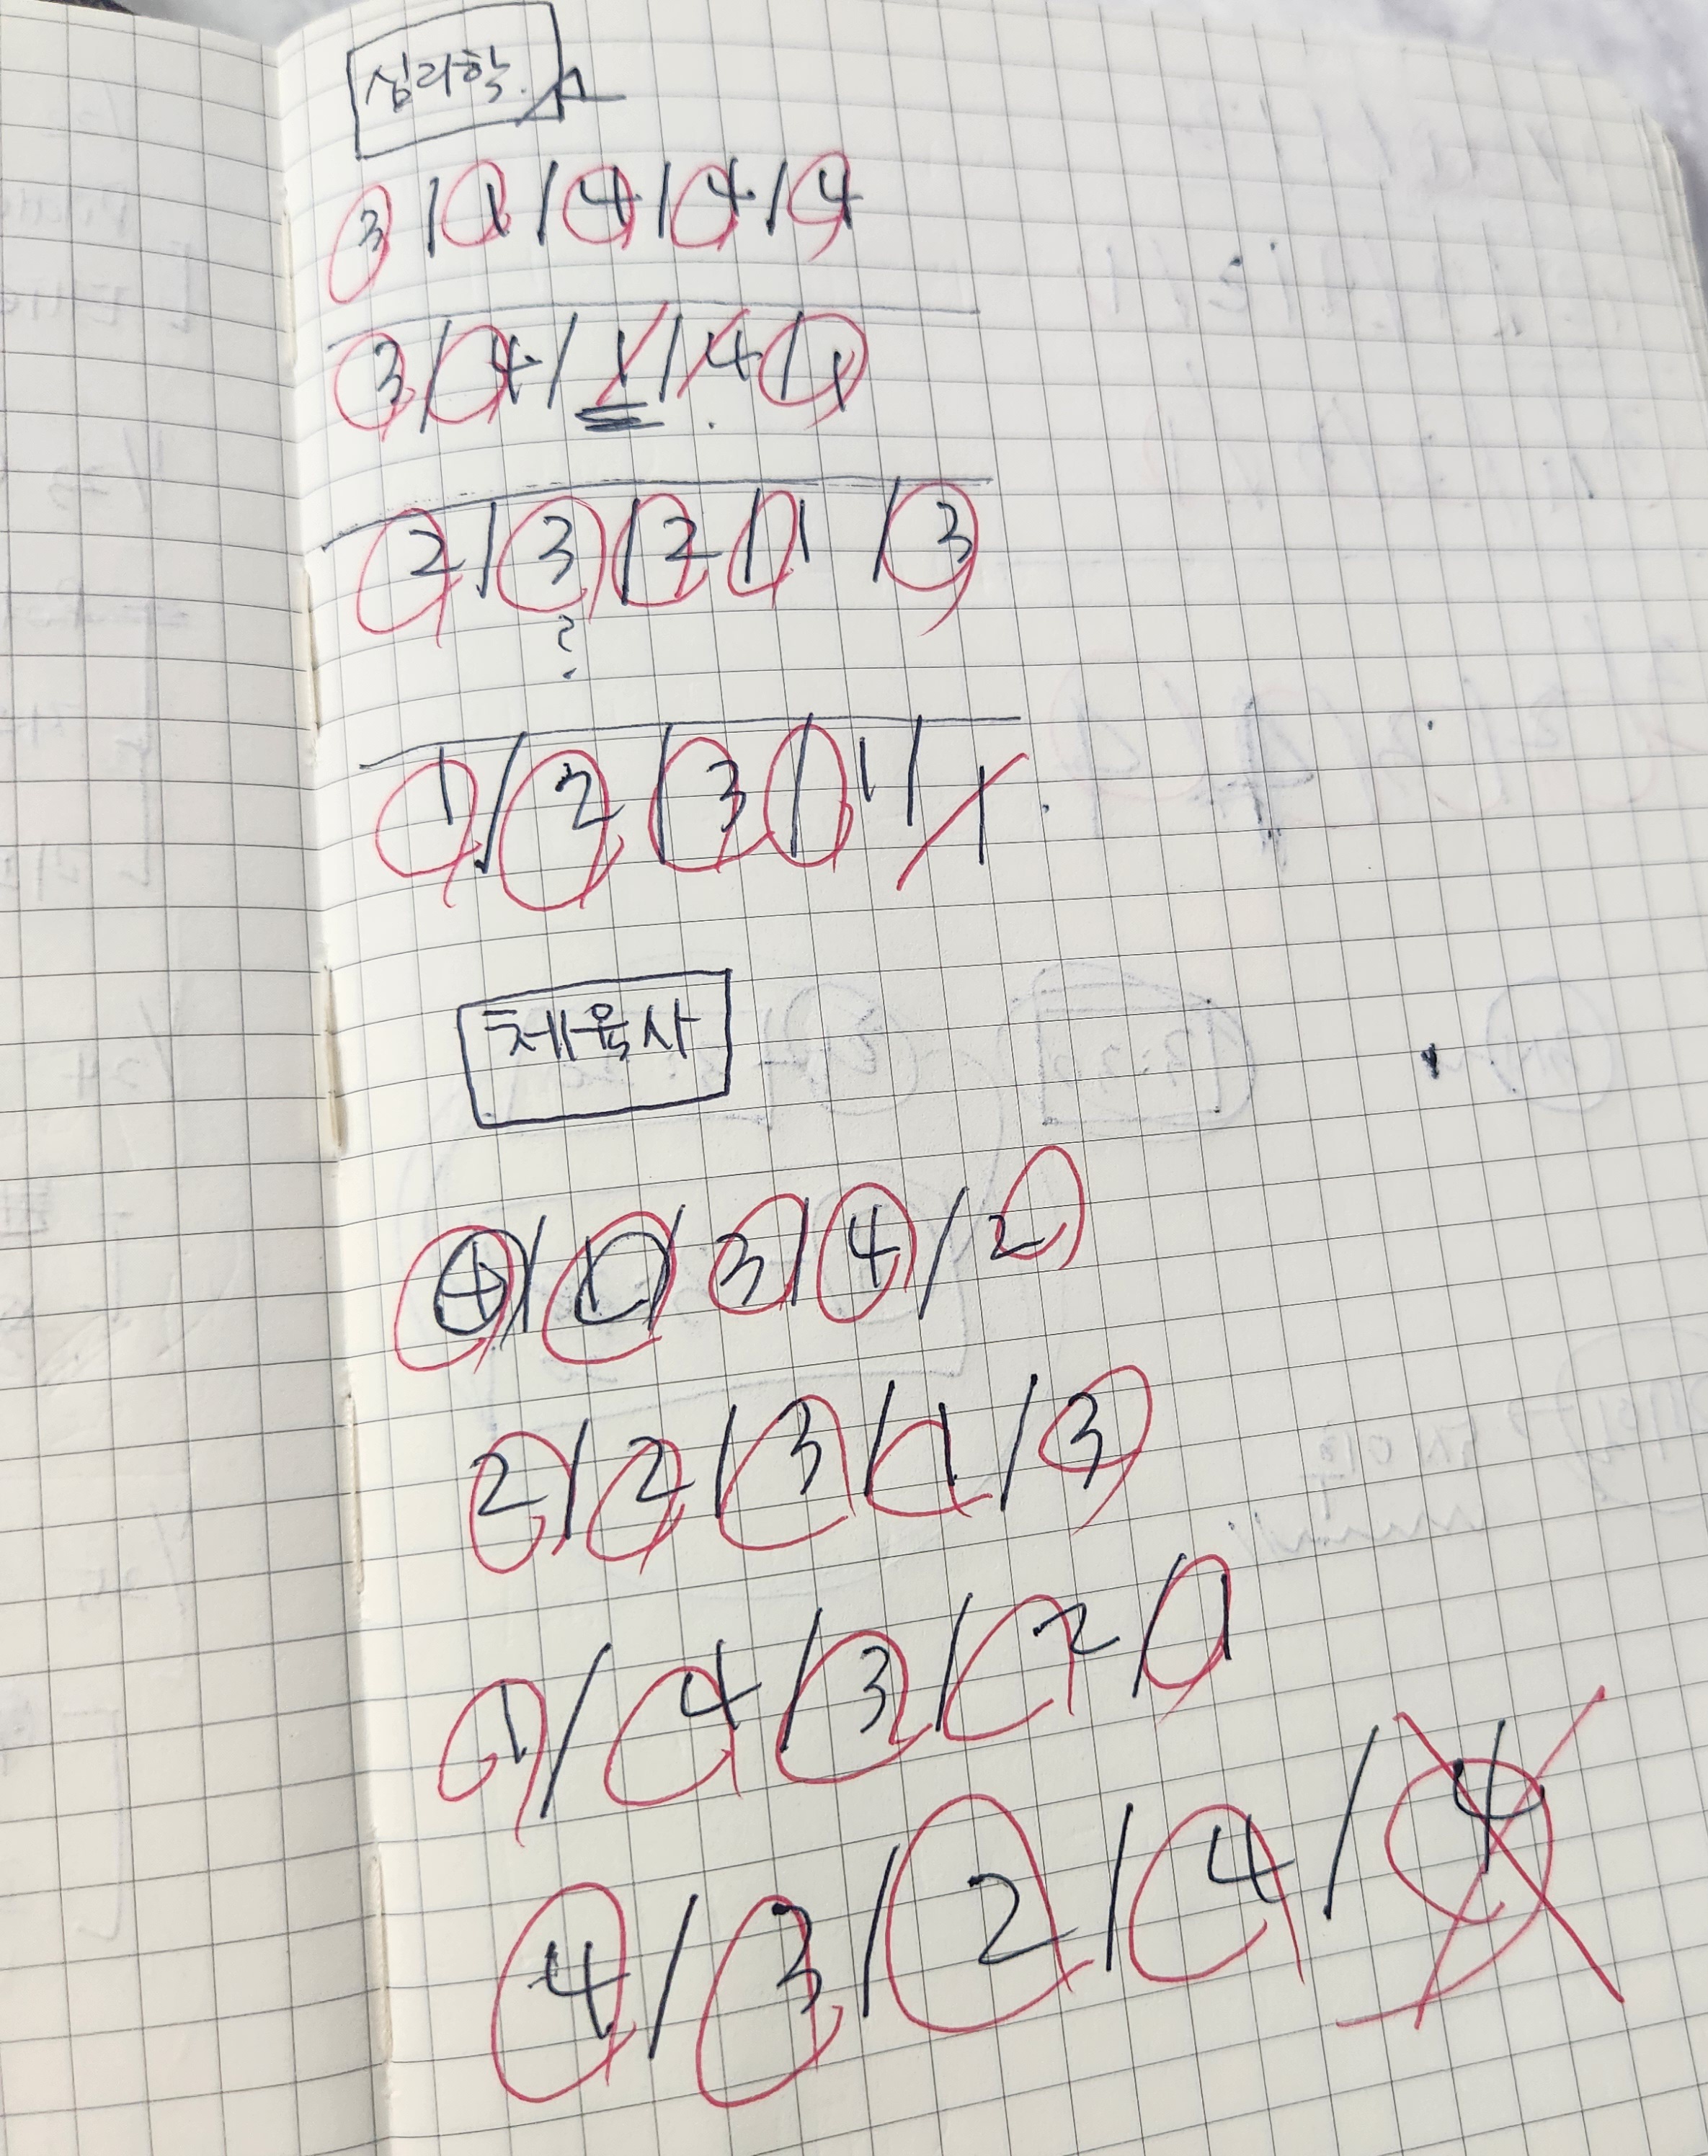 심리학
3 / 1 / 4 / 4 / 4
3 / 4 / 1 / 4 / 1
2 / 3 / 2 / 1 / 3
?
1 / 2 / 3 / 1 / 1
체육사
4 / 1 / 3 / 4 / 2
2 / 2 / 3 / 1 / 3
1 / 4 / 3 / 2 / 1
4 / 3 / 2 / 4 / 4